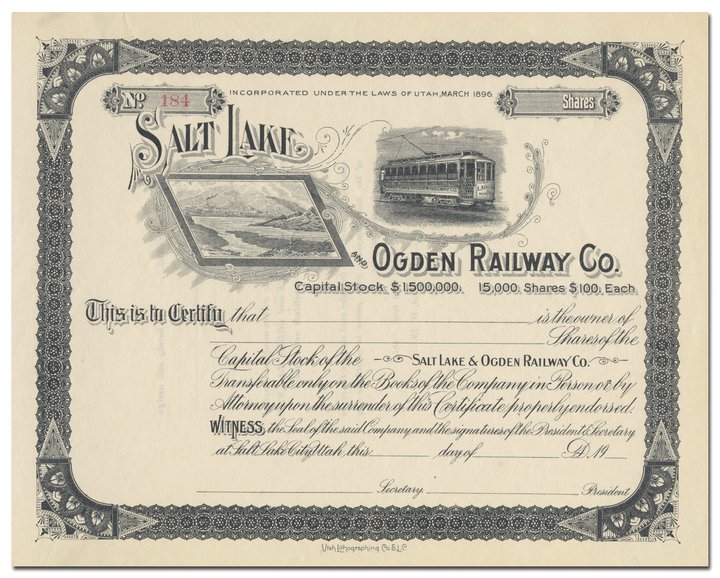 INCORPORATED UNDER THE LAWS OF UTAH, MARCH 1896
No 184
Shares
SALT LAKE
AND OGDEN RAILWAY CO.
Capital Stock $1,500,000. 15,000 Shares $100. Each
This is to Certify that is the owner of
Shares of the
Capital Stock of the SALT LAKE & OGDEN RAILWAY CO.
Transferable only on the Books of the Company in Person or by
Attorney upon the surrender of this Certificate properly endorsed.
WITNESS, the Seal of the said Company and the signatures of the President & Secretary
at Salt Lake City, Utah, this day of A.D. 19
Secretary. President.
Utah Lithographing Co. S.L.C.